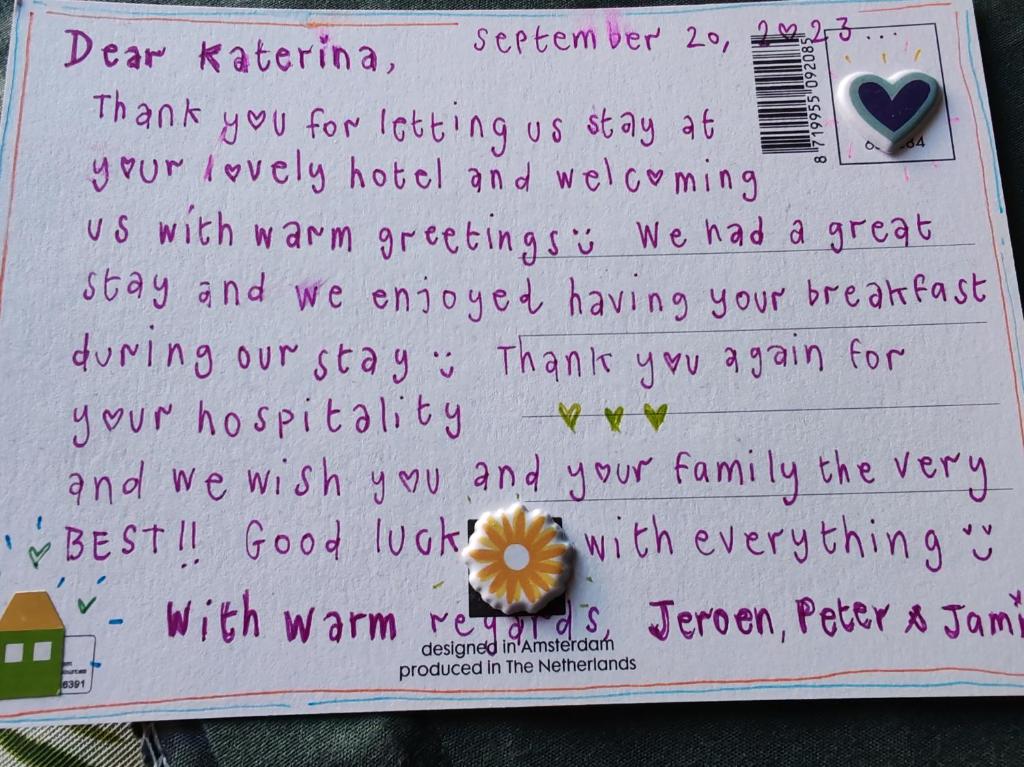 September 20, 2023...
Dear Katerina,
Thank you for letting us stay at
your lovely hotel and welcoming
us with warm greetings :) We had a great
stay and we enjoyed having your breakfast
during our stay :) Thank you again for
your hospitality ♥ ♥ ♥
and we wish you and your family the very
BEST!! Good luck with everything :)
With warm regards, Jeroen, Peter & Jami
designed in Amsterdam
produced in The Netherlands
8 719955 092085
6391